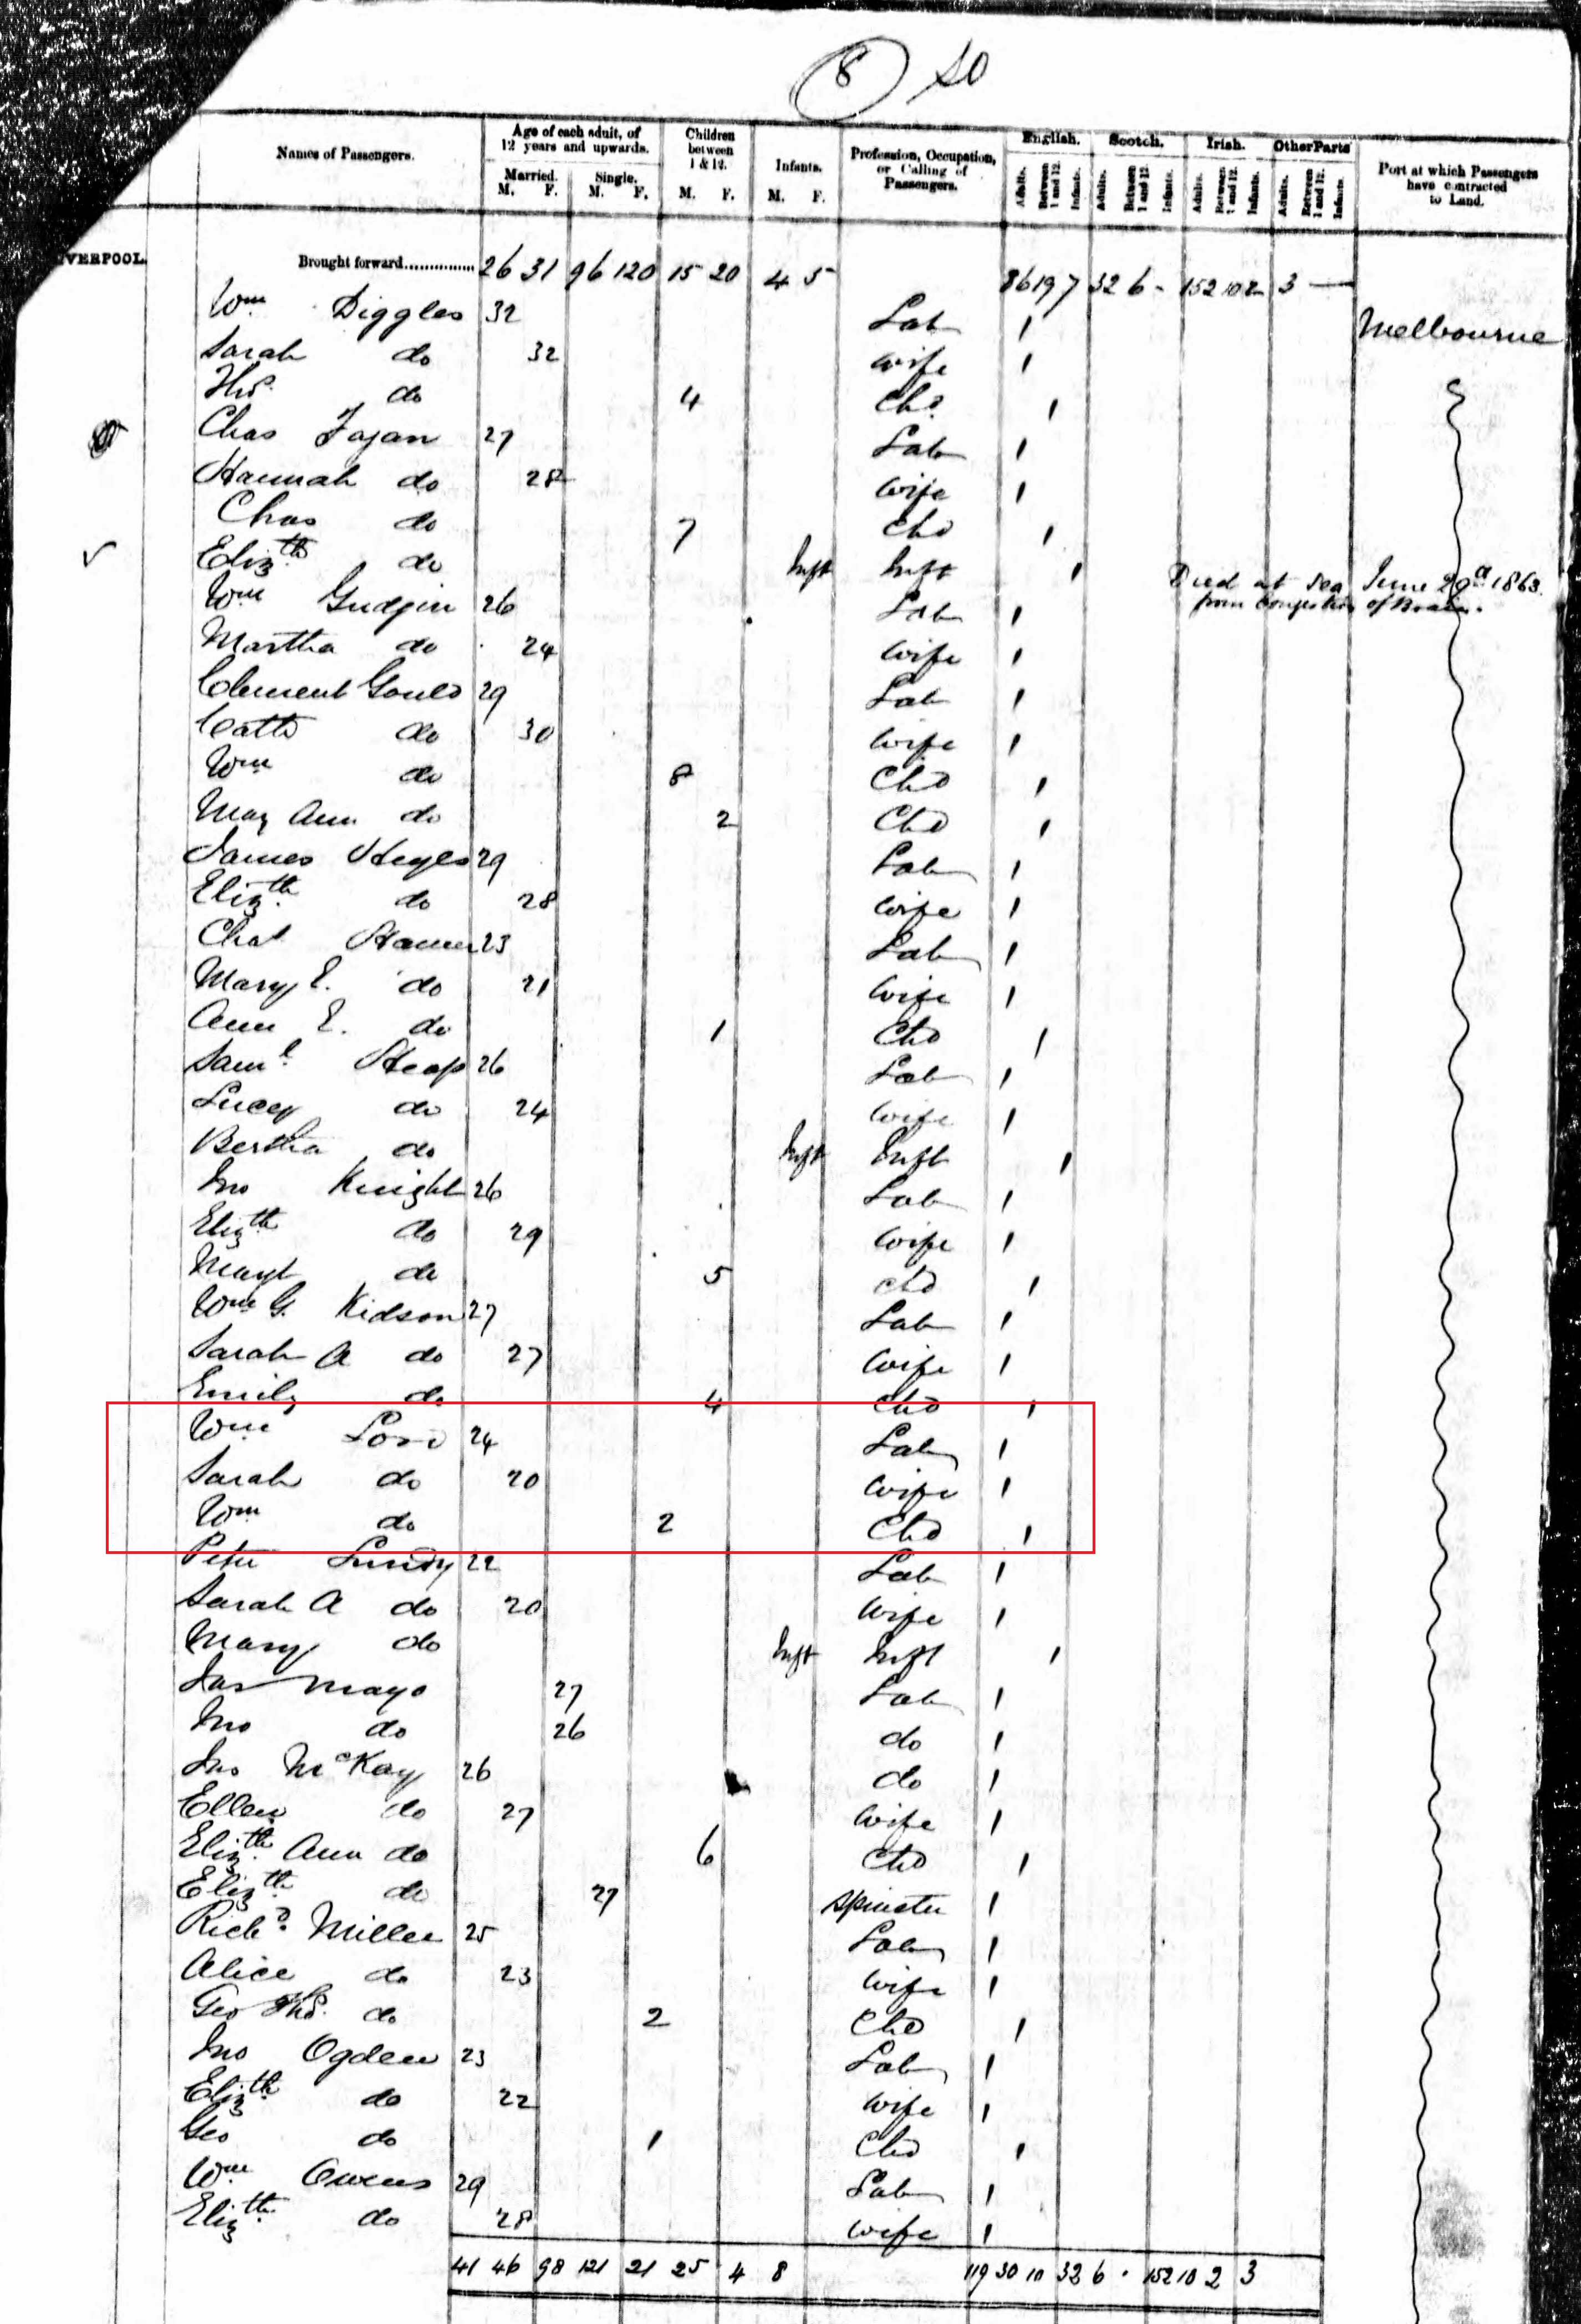 8 SO
Names of Passengers. Age of each adult, of 12 years and upwards. Married. M. F. Single. M. F. Children between 1 & 12. M. F. Infants. M. F. Profession, Occupation, or Calling of Passengers. English. Adults. Between 1 and 12. Infants. Scotch. Adults. Between 1 and 12. Infants. Irish. Adults. Between 1 and 12. Infants. Other Parts Adults. Between 1 and 12. Infants. Port at which Passengers have contracted to Land.
VERPOOL. Brought forward 26 31 96 120 15 20 4 5 86 19 7 32 6 - 152 10 2 3 —
Wm Diggles 32 Lab 1 Melbourne
Sarah do 32 wife 1
Thos. do 4 Chd 1
Chas Fagan 27 Lab 1
Hannah do 28 wife 1
Chas do 7 Chd 1
Elizth do Inft Inft 1 Died at Sea June 29 1863 from Congestion of Brain.
Wm Gudgin 26 Lab 1
Martha do 24 wife 1
Clement Gould 29 Lab 1
Cath do 30 wife 1
Wm do 8 Chd 1
Mary Ann do 2 Chd 1
James Heyes 29 Lab 1
Elizth do 28 wife 1
Chas Hamer 23 Lab 1
Mary E. do 21 wife 1
Ann E. do 1 Chd 1
Saml Heap 26 Lab 1
Lucy do 24 wife 1
Bertha do Inft Inft 1
Jno Knight 26 Lab 1
Elizth do 29 wife 1
Margt do 5 Chd 1
Wm G. Kidson 27 Lab 1
Sarah A do 27 wife 1
Emily do 4 Chd 1
Wm Lord 24 Lab 1
Sarah do 20 wife 1
Wm do 2 Chd 1
Peter Lundy 22 Lab 1
Sarah A do 20 wife 1
Mary do Inft Inft 1
Jas Mayo 27 Lab 1
Jno do 26 do 1
Jno McKay 26 do 1
Ellen do 27 wife 1
Elizth Ann do 6 Chd 1
Elizth do 27 Spinster 1
Richd Miller 25 Lab 1
Alice do 23 wife 1
Geo Thos. do 2 Chd 1
Jno Ogden 23 Lab 1
Elizth do 22 wife 1
Geo do 1 Chd 1
Wm Owens 29 Lab 1
Elizth do 28 wife 1
41 46 98 121 21 25 4 8 119 30 10 32 6 . 152 10 2 3